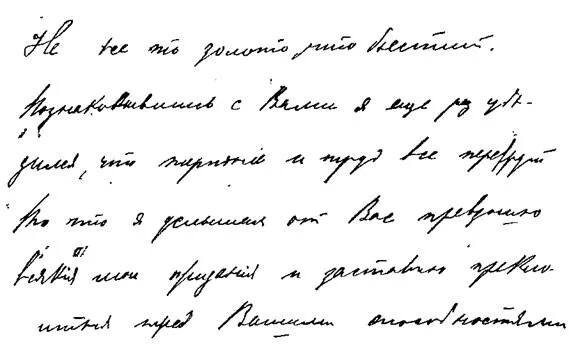 Не все то золото, что блестит.
Познакомившись с Вами я еще раз убе-
дился, что терпение и труд все перетрут
Но что я услышал от Вас превзошло
всякия мои ожидания и заставило прекло-
ниться перед Вашими способностями